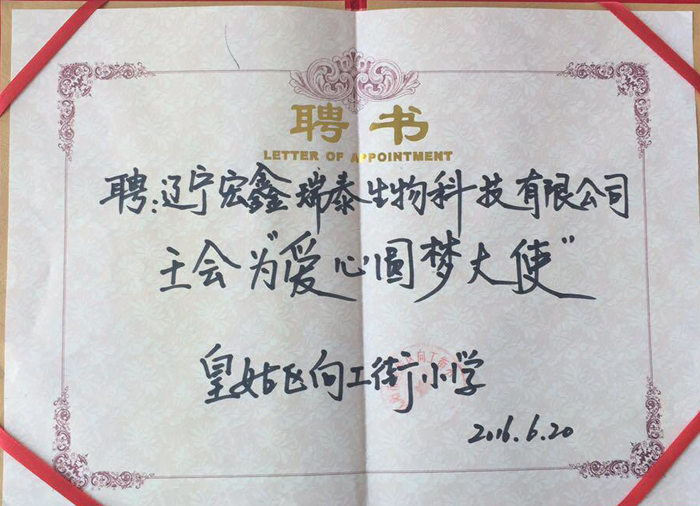 聘书
LETTER OF APPOINTMENT
聘:辽宁宏鑫瑞泰生物科技有限公司
王会为“爱心圆梦大使”
皇姑区向工街小学
2016.6.20